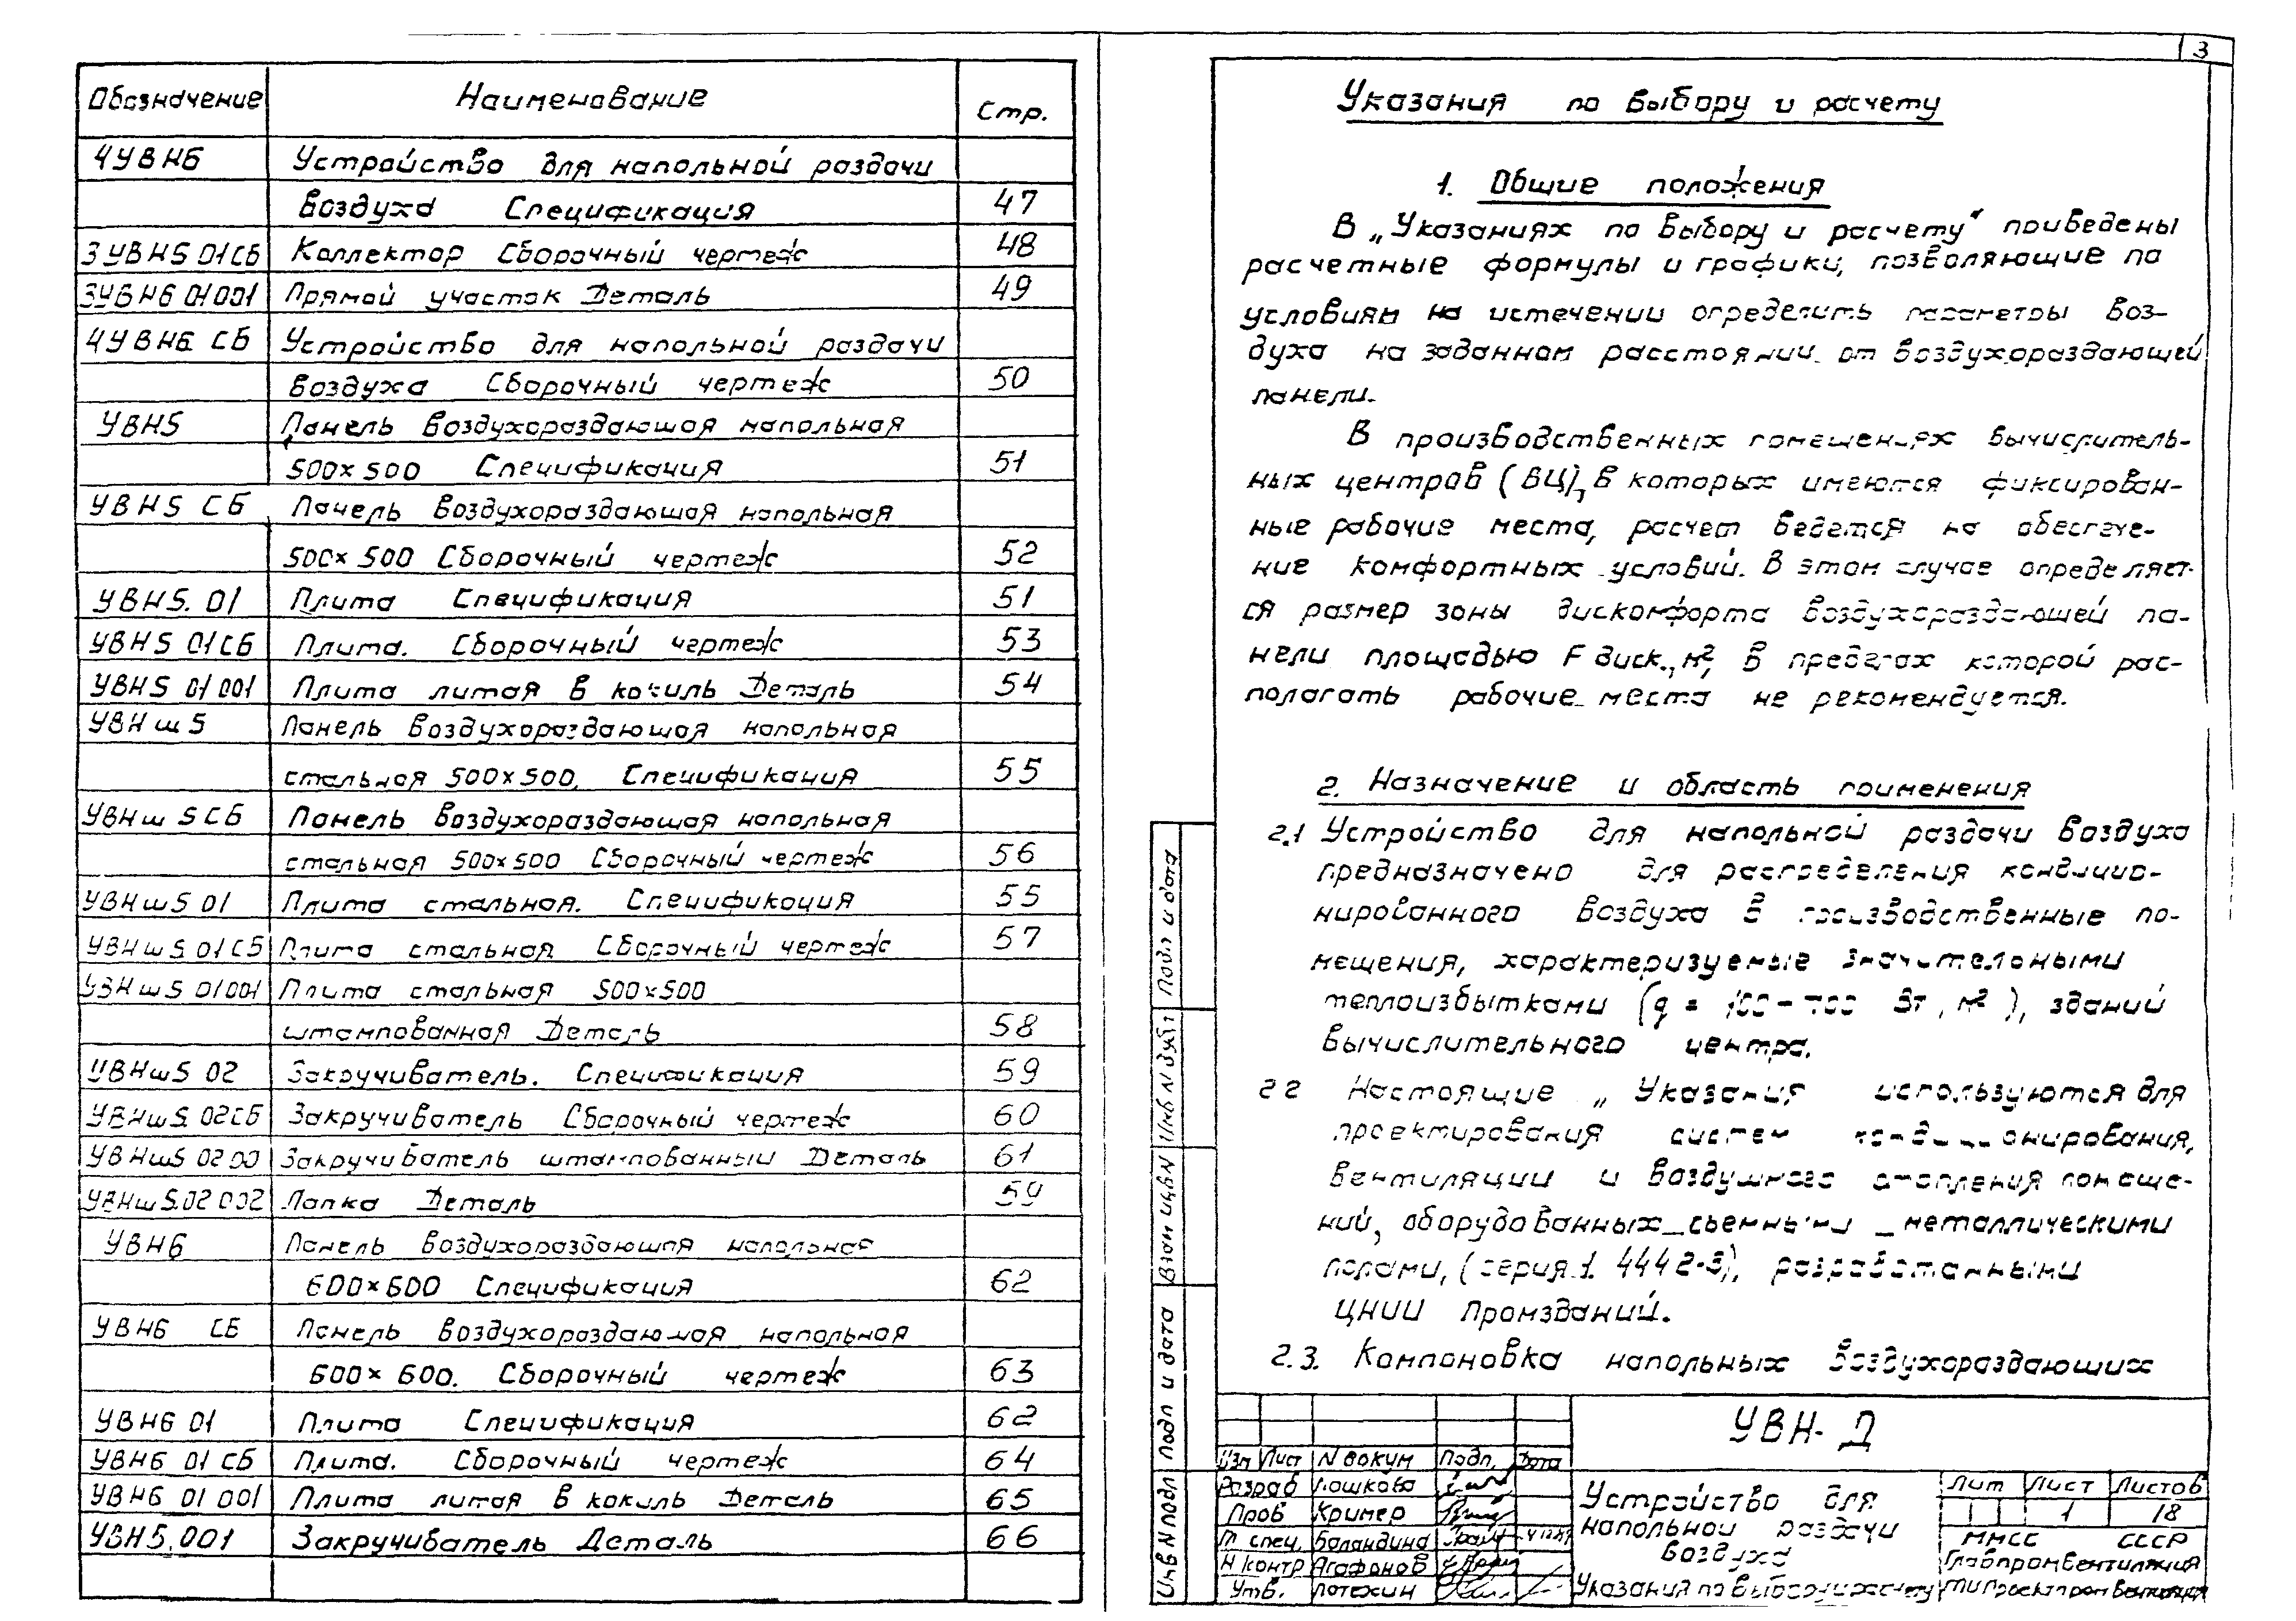 3
Обозначение Наименование Стр.
4УВН6 Устройство для напольной раздачи
воздуха Спецификация 47
3УВН5 01СБ Коллектор Сборочный чертеж 48
3УВН6 01001 Прямой участок Деталь 49
4УВН6 СБ Устройство для напольной раздачи
воздуха Сборочный чертеж 50
УВН5 Панель воздухораздающая напольная
500×500 Спецификация 51
УВН5 СБ Панель воздухораздающая напольная
500×500 Сборочный чертеж 52
УВН5.01 Плита Спецификация 51
УВН5 01СБ Плита. Сборочный чертеж 53
УВН5 01 001 Плита литая в кокиль Деталь 54
УВНш5 Панель воздухораздающая напольная
стальная 500×500. Спецификация 55
УВНш5СБ Панель воздухораздающая напольная
стальная 500×500 Сборочный чертеж 56
УВНш5 01 Плита стальная. Спецификация 55
УВНш5 01СБ Плита стальная Сборочный чертеж 57
УВНш5 01001 Плита стальная 500×500
штампованная Деталь 58
УВНш5 02 Закручиватель. Спецификация 59
УВНш5 02СБ Закручиватель Сборочный чертеж 60
УВНш5 02 00 Закручиватель штампованный Деталь 61
УВНш5.02 002 Лапка Деталь 59
УВН6 Панель воздухораздающая напольная
600×600 Спецификация 62
УВН6 СБ Панель воздухораздающая напольная
600×600. Сборочный чертеж 63
УВН6 01 Плита Спецификация 62
УВН6 01 СБ Плита. Сборочный чертеж 64
УВН6 01 001 Плита литая в кокиль Деталь 65
УВН5.001 Закручиватель Деталь 66
Указания по выбору и расчету
1. Общие положения
В „Указаниях по выбору и расчету“ приведены
расчетные формулы и графики, позволяющие по
условиям на истечении определить параметры воз-
духа на заданном расстоянии от воздухораздающей
панели.
В производственных помещениях вычислитель-
ных центров (ВЦ), в которых имеются фиксирован-
ные рабочие места, расчет ведется на обеспече-
ние комфортных условий. В этом случае определяет-
ся размер зоны дискомфорта воздухораздающей па-
нели площадью F диск., м², в пределах которой рас-
полагать рабочие места не рекомендуется.
2. Назначение и область применения
2.1 Устройство для напольной раздачи воздуха
предназначено для распределения кондицио-
нированного воздуха в производственные по-
мещения, характеризуемые значительными
теплоизбытками (q = Вт, м²), зданий
вычислительного центра.
2 2 Настоящие „ Указания используются для
проектирования систем кондиционирования,
вентиляции и воздушного отопления помеще-
ний, оборудованных съемными металлическими
полами, (серия 1. 444 2-3), разработанными
ЦНИИ Промзданий.
2.3. Компоновка напольных воздухораздающих
Подп и дата
Инв N дубл
Взам инв N
Подп и дата
Инв N подл
УВН-Д
Изм Лист N докум Подп. Дата
Разраб Мошкова
Пров Кример
Гл спец. Баландина
Н контр Агафонов
Утв. Потехин
Устройство для
напольной раздачи
воздуха
Указания по выбору и расчету
Лит Лист Листов
1 18
ММСС СССР
Главпромвентиляция
ГПИ Проектпромвентиляция